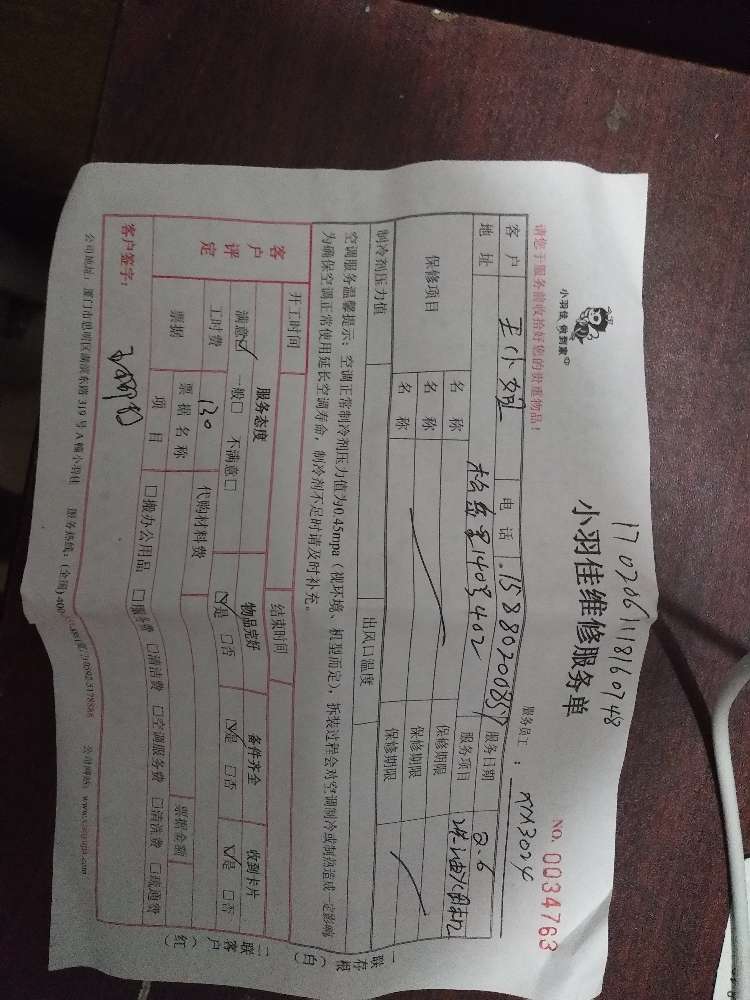 1702061118160748
小羽佳 例到家
小羽佳维修服务单
NO. 0034763
请您于服务前收拾好您的贵重物品！
服务员工： XM3024
客户 王小姐 电话 15880200857 服务日期 2.6
地址 1409,402 服务项目
保修项目 名称 保修期限
名称 保修期限
名称 保修期限
制冷剂压力值 出风口温度
空调服务温馨提示：空调正常制冷剂压力值为0.45mpa（视环境、机型而定），拆装过程会对空调制冷或制热造成一定影响
为确保空调正常使用延长空调寿命，制冷剂不足时请及时补充。
开工时间 结束时间
客户评定 服务态度 物品完好 备件齐全 收到卡片
满意☑ 一般□ 不满意□ ☑是 □否 ☑是 □否 ☑是 □否
工时费 130 代购材料费
票据 票据名称 票据金额
项目 □搬办公用品 □服务费 □清洁费 □空调服务费 □清洗费 □疏通费
客户签字：
一联存根（白） 二联客户（红）
公司地址：厦门市思明区湖滨东路319号A幢小羽佳 服务热线：（全国）400 公司网站：www.xiaoyujia.com